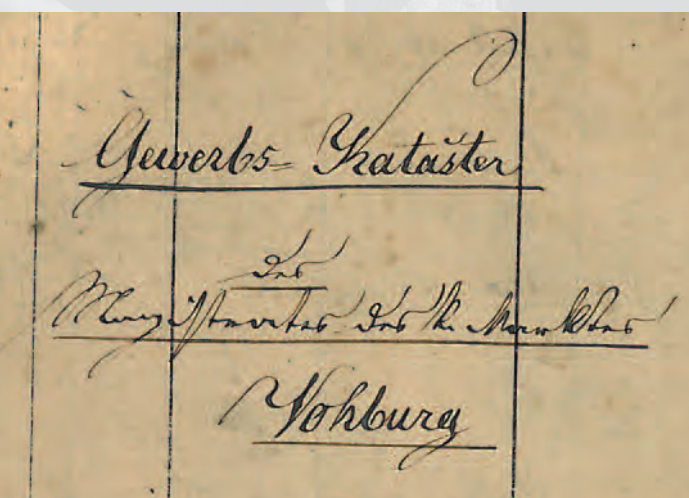 Gewerbs= Kataster
des
Magistrates des k. Marktes
Vohburg